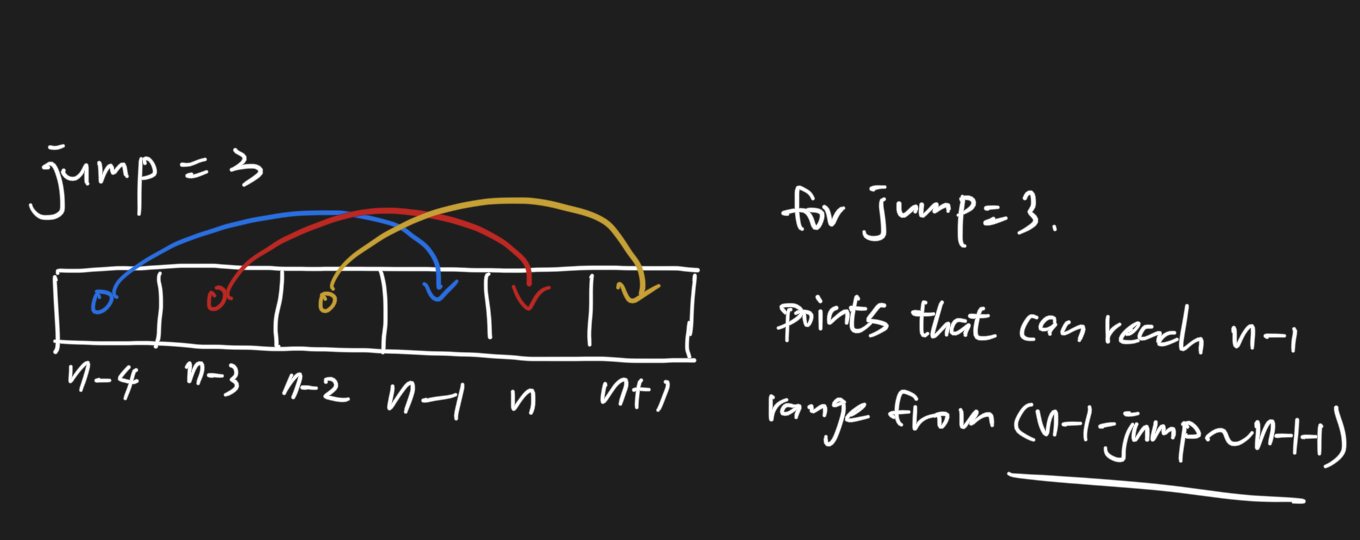 jump = 3
n-4 n-3 n-2 n-1 n n+1
for jump=3.
points that can reach n-1
range from (n-1-jump~n-1-1)